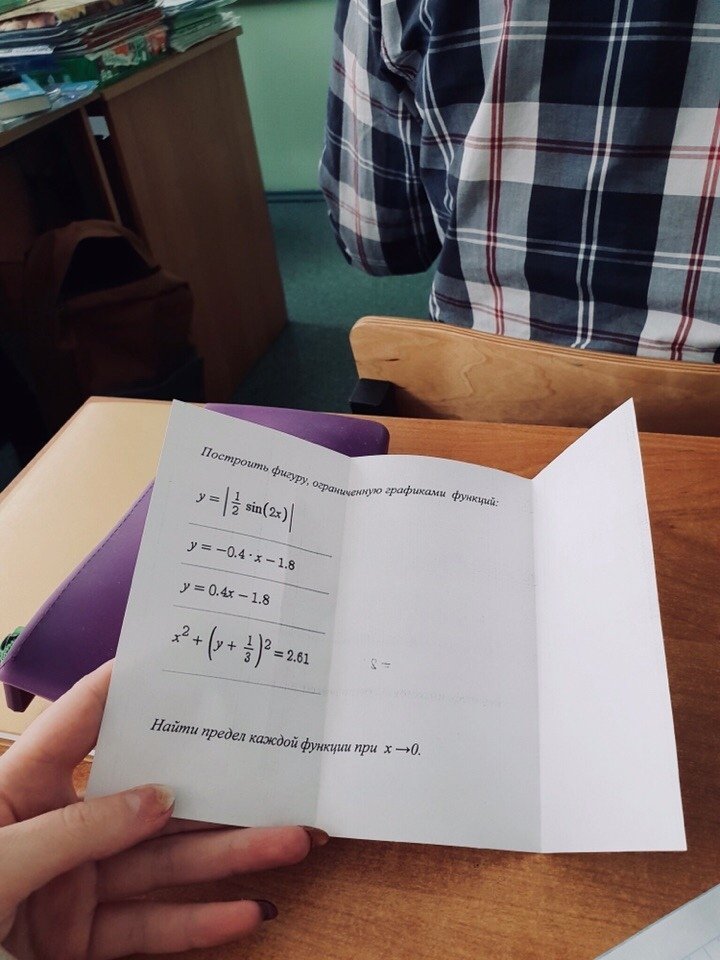 Построить фигуру, ограниченную графиками функций:
y = |1/2 sin(2x)|
y = −0.4 · x − 1.8
y = 0.4x − 1.8
x² + (y + 1/3)² = 2.61
Найти предел каждой функции при x →0.